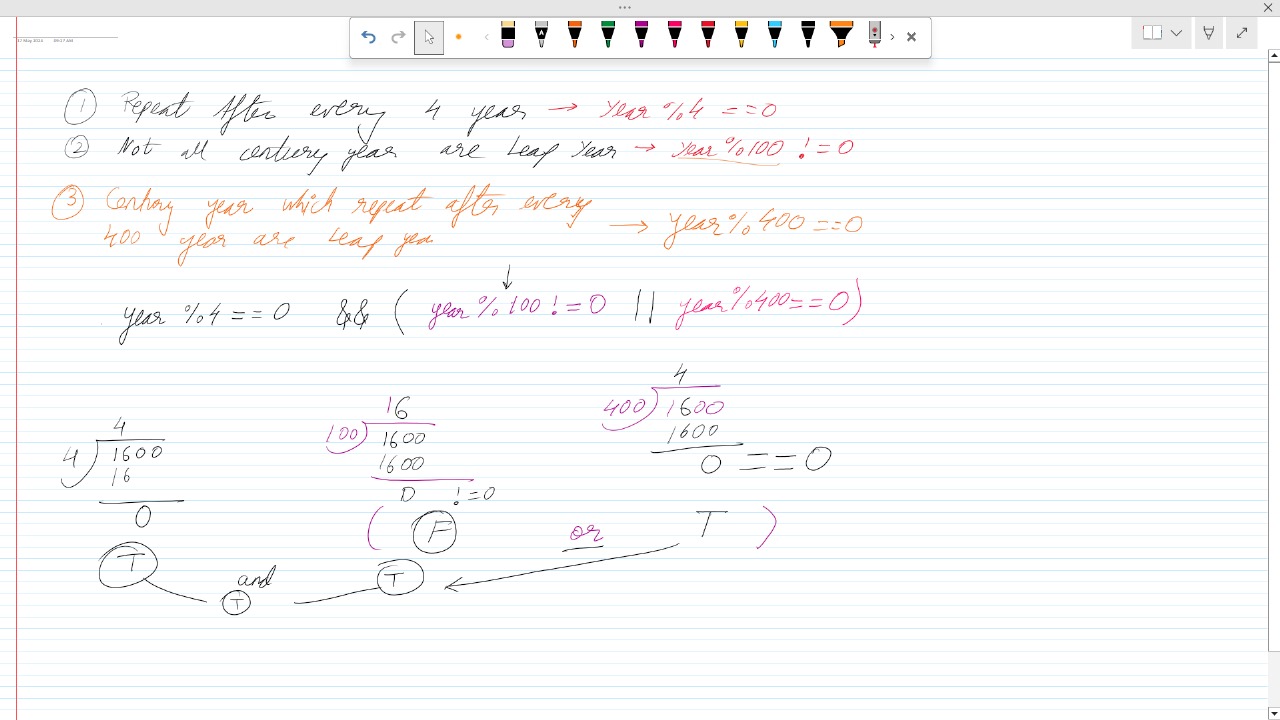 ① Repeat After every 4 year → year %4 ==0
② Not all century year are Leap Year → year %100 != 0
③ Century year which repeat after every
400 year are Leap yea → year % 400 ==0
year %4 == 0 && ( year %100 != 0 || year%400==0)
4
4) 1600
16
0
T
16
100) 1600
1600
0 != 0
4
400) 1600
1600
0 == 0
( F or T )
T and T
T